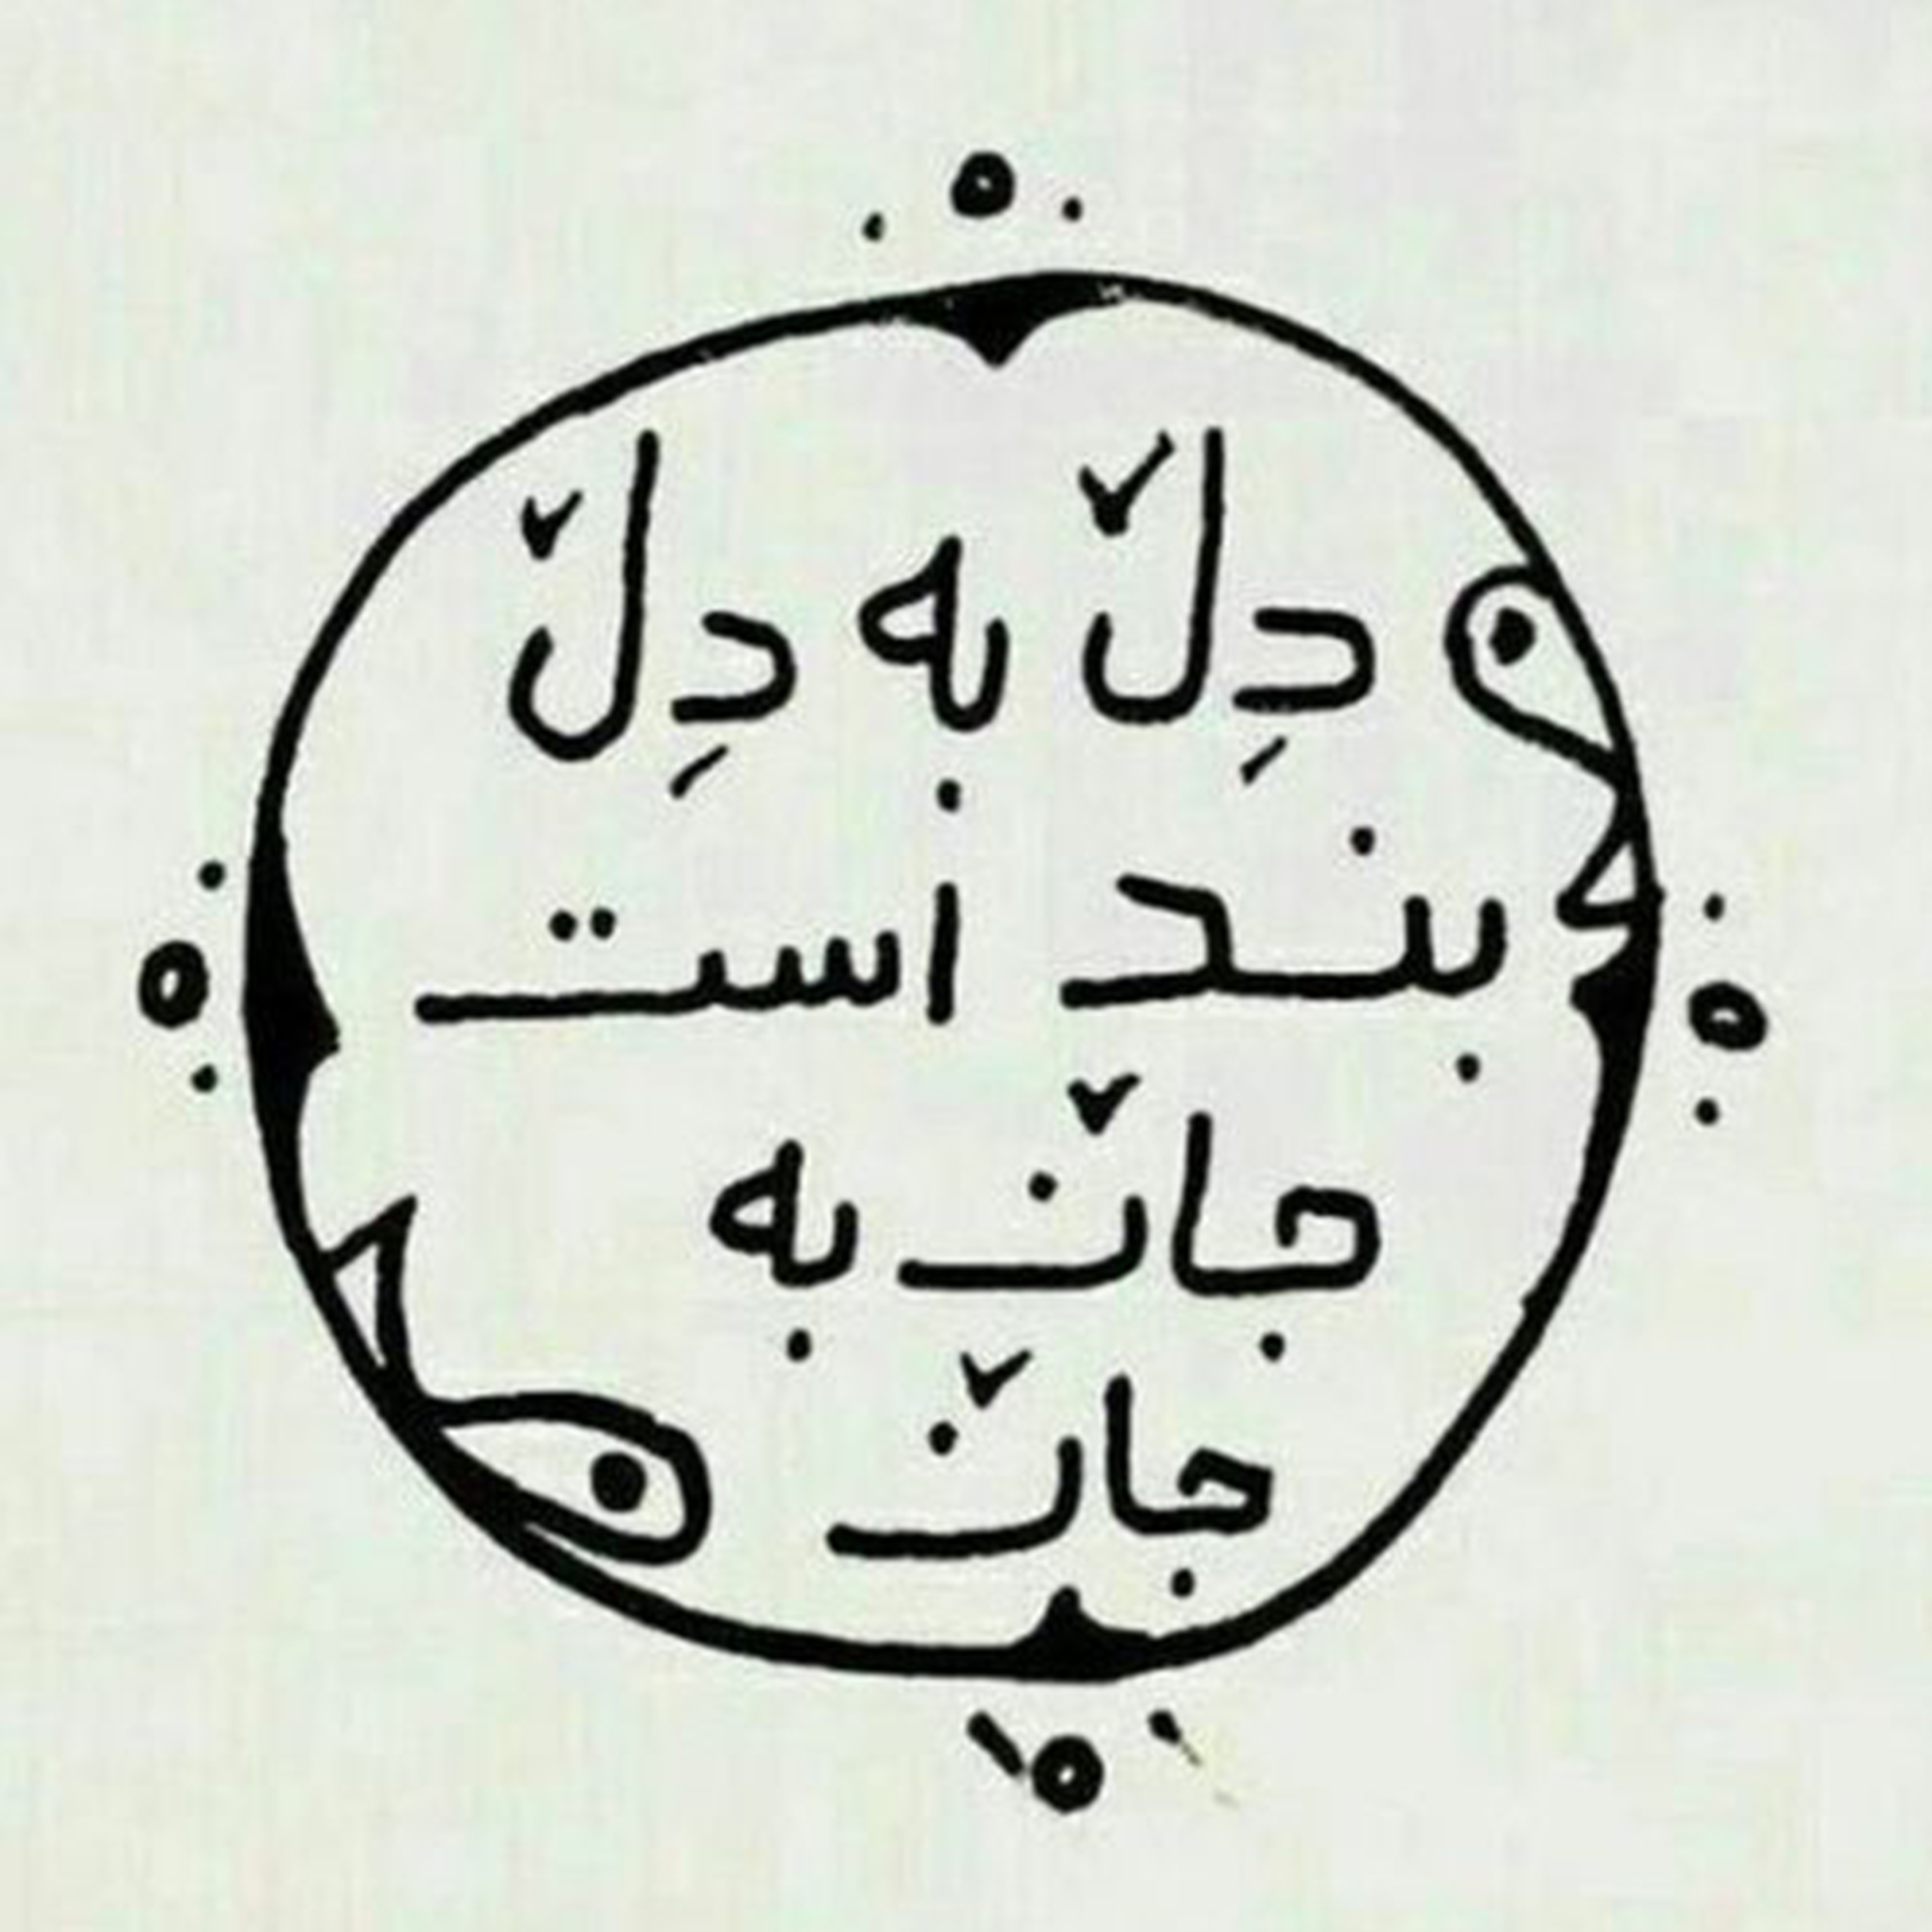 دِلٚ به دِلٚ
بند است
جانٚ به
جانٚ